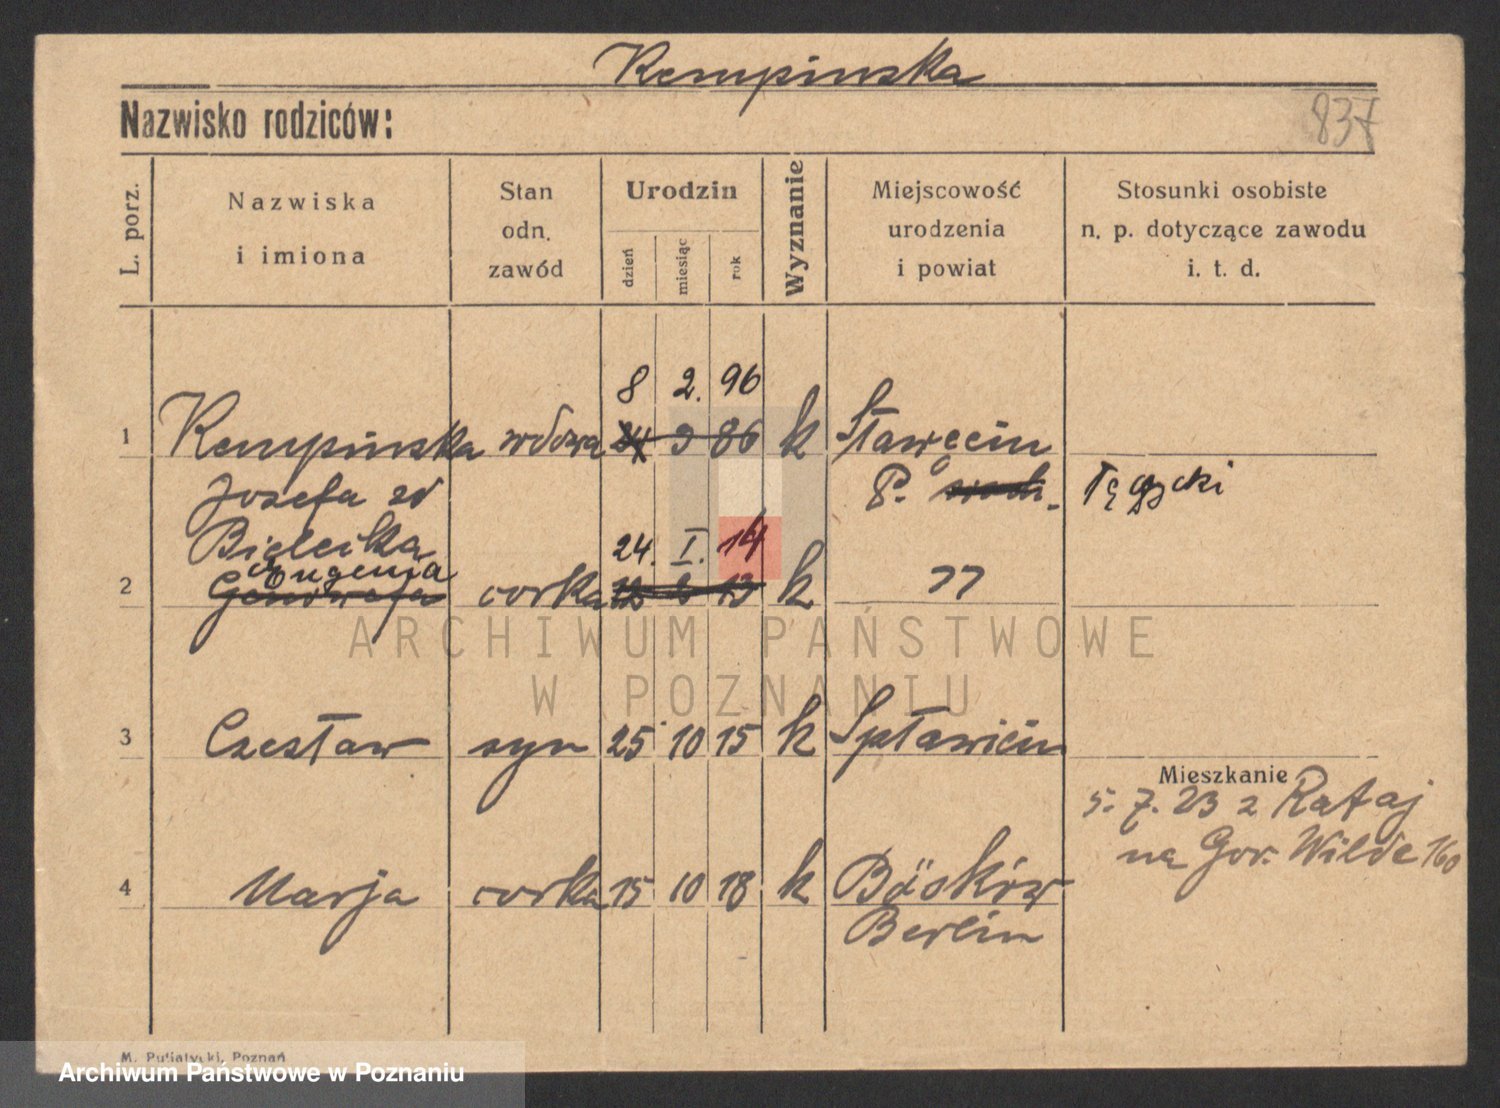 Kempinska
Nazwisko rodziców:
837
L. porz.
Nazwiska
i imiona
Stan
odn.
zawód
Urodzin
dzień
miesiąc
rok
Wyznanie
Miejscowość
urodzenia
i powiat
Stosunki osobiste
n. p. dotyczące zawodu
i. t. d.
8 2. 96
1 Kempinska wdowa 24 9 86 k Sławecin
Jozefa zd P.
Bielecka 24. I. 14
Eugenia
2 Genowefa corka 12 13 k "
ARCHIWUM PAŃSTWOWE
W POZNANIU
3 Czesław syn 25 10 15 k Spławiein
Mieszkanie
5. 7. 23 z Rataj
na Gor. Wilde 160
4 Marja corka 15 10 18 k
Berlin
M. Putiatycki, Poznań
Archiwum Państwowe w Poznaniu